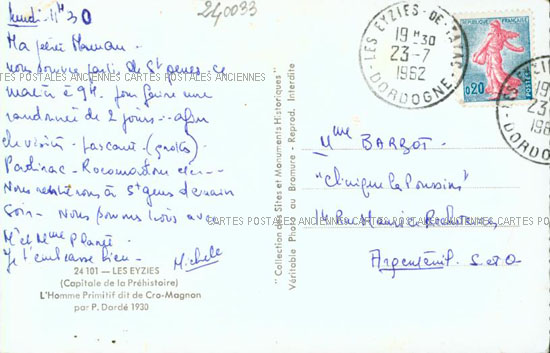 Lundi - 11H30
240033
Ma petite Maman -
nous sommes partis de St Genes ce
matin à 9H. pour faire une
randonnée de 2 jours - afin
de visiter - Lascaux - (grottes)
Padirac - Rocamadour etc ---
Nous rentrerons à St Genes demain
Soir - Nous sommes tous avec
Mr et Mme
Je t'embrasse bien -
Michèle
24 101 — LES EYZIES
(Capitale de la Préhistoire)
L'Homme Primitif dit de Cro-Magnon
par P. Dardé 1930
"Collection des Sites et Monuments Historiques"
Véritable Photo au Bromure - Reprod. Interdite
LES EYZIES-DE-TAYAC
19H30
23-7
1962
DORDOGNE
REPUBLIQUE FRANÇAISE
0,20
POSTES
LES EY
19
23
196
DOR
Mme BARBOT -
"Clinique les Poussins"
14 Rue
Argenteuil. S et O
CARTES POSTALES ANCIENNES CARTES POSTALES ANCIENNES CARTES POSTALES ANCIENNES
CARTES POSTALES ANCIENNES CARTES POSTALES ANCIENNES